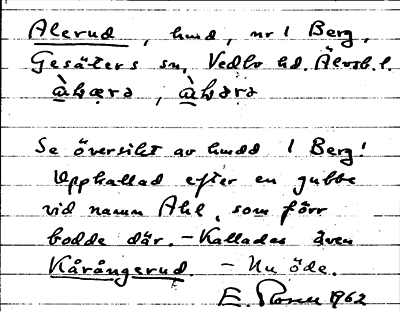 Alerud, hmd, nr 1 Berg,
Gesäters sn, Vedbo hd. Älvsb. l.
Se översikt av hmdd 1 Berg!
Uppkallad efter en gubbe
vid namn Ahl, som förr
bodde där. – Kallades även
Kårångerud. – Nu öde.
E. Rosen 1962